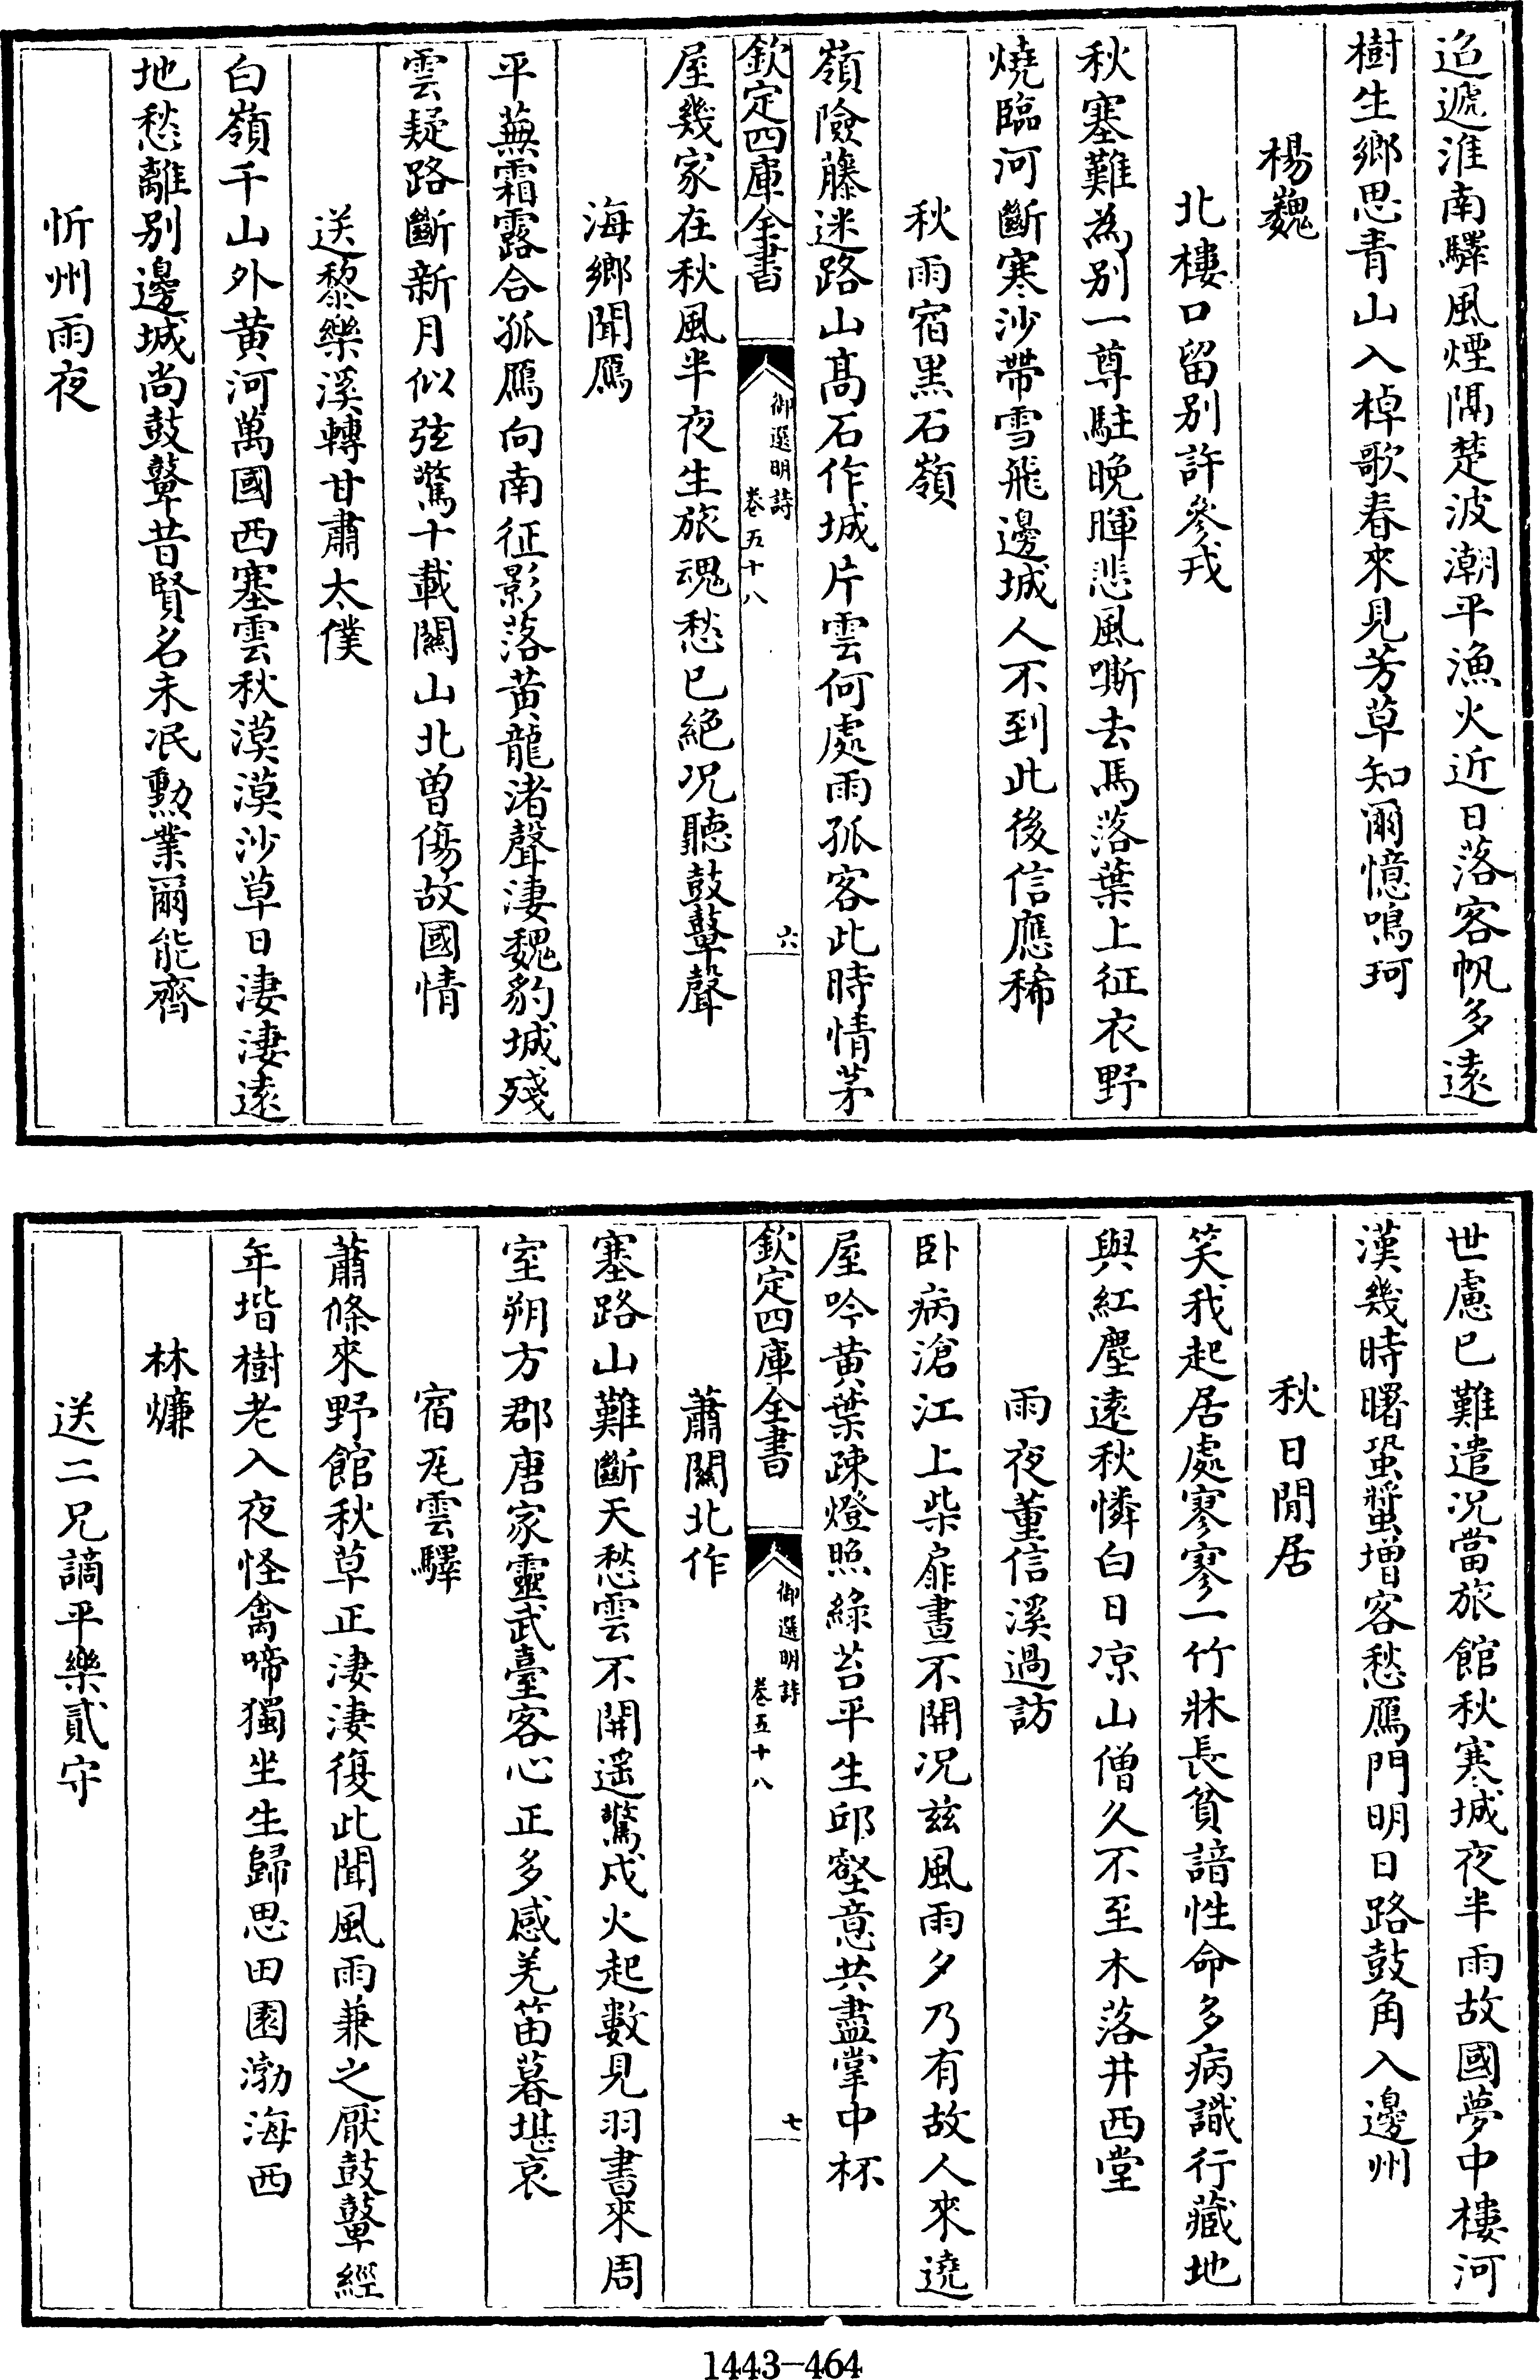 迢遞淮南驛風煙隔楚波潮平漁火近日落客帆多遠
樹生鄉思青山入棹歌春來見芳草知爾憶鳴珂
楊巍
北樓口留别許參戎
秋塞難為别一尊駐晚暉悲風嘶去馬落葉上征衣野
燒臨河斷寒沙帶雪飛邊城人不到此後信應稀
秋雨宿黑石嶺
嶺險藤迷路山髙石作城片雲何處雨孤客此時情茅
欽定四庫全書
御選明詩
卷五十八
六
屋幾家在秋風半夜生旅魂愁已絕况聽鼓鼙聲
海鄉聞鴈
平蕪霜露合孤鴈向南征影落黄龍渚聲淒魏豹城殘
雲疑路斷新月似弦驚十載關山北曽傷故國情
送黎樂溪轉甘肅太僕
白嶺千山外黄河萬國西塞雲秋漠漠沙草日淒淒逺
地愁離别邊城尚鼓鼙昔賢名未冺勲業爾能齊
忻州雨夜
世慮已難遣况當旅館秋寒城夜半雨故國夢中樓河
漢幾時曙蛩螀増客愁鴈門明日路鼓角入邊州
秋日閒居
笑我起居處寥寥一竹牀長貧諳性命多病識行藏地
與紅塵遠秋憐白日凉山僧久不至木落井西堂
雨夜董信溪過訪
卧病滄江上柴扉晝不開况兹風雨夕乃有故人來遶
屋吟黄葉疎燈照綠苔平生邱壑意共盡掌中杯
欽定四庫全書
御選明詩
卷五十八
七
蕭關北作
塞路山難斷天愁雲不開遥驚戍火起數見羽書來周
室朔方郡唐家靈武臺客心正多感羌笛暮堪哀
宿㡳雲驛
蕭條來野館秋草正淒淒復此聞風雨兼之厭鼓鼙經
年堦樹老入夜怪禽啼獨坐生歸思田園渤海西
林㷰
送二兄謫平樂貳守
1443-464